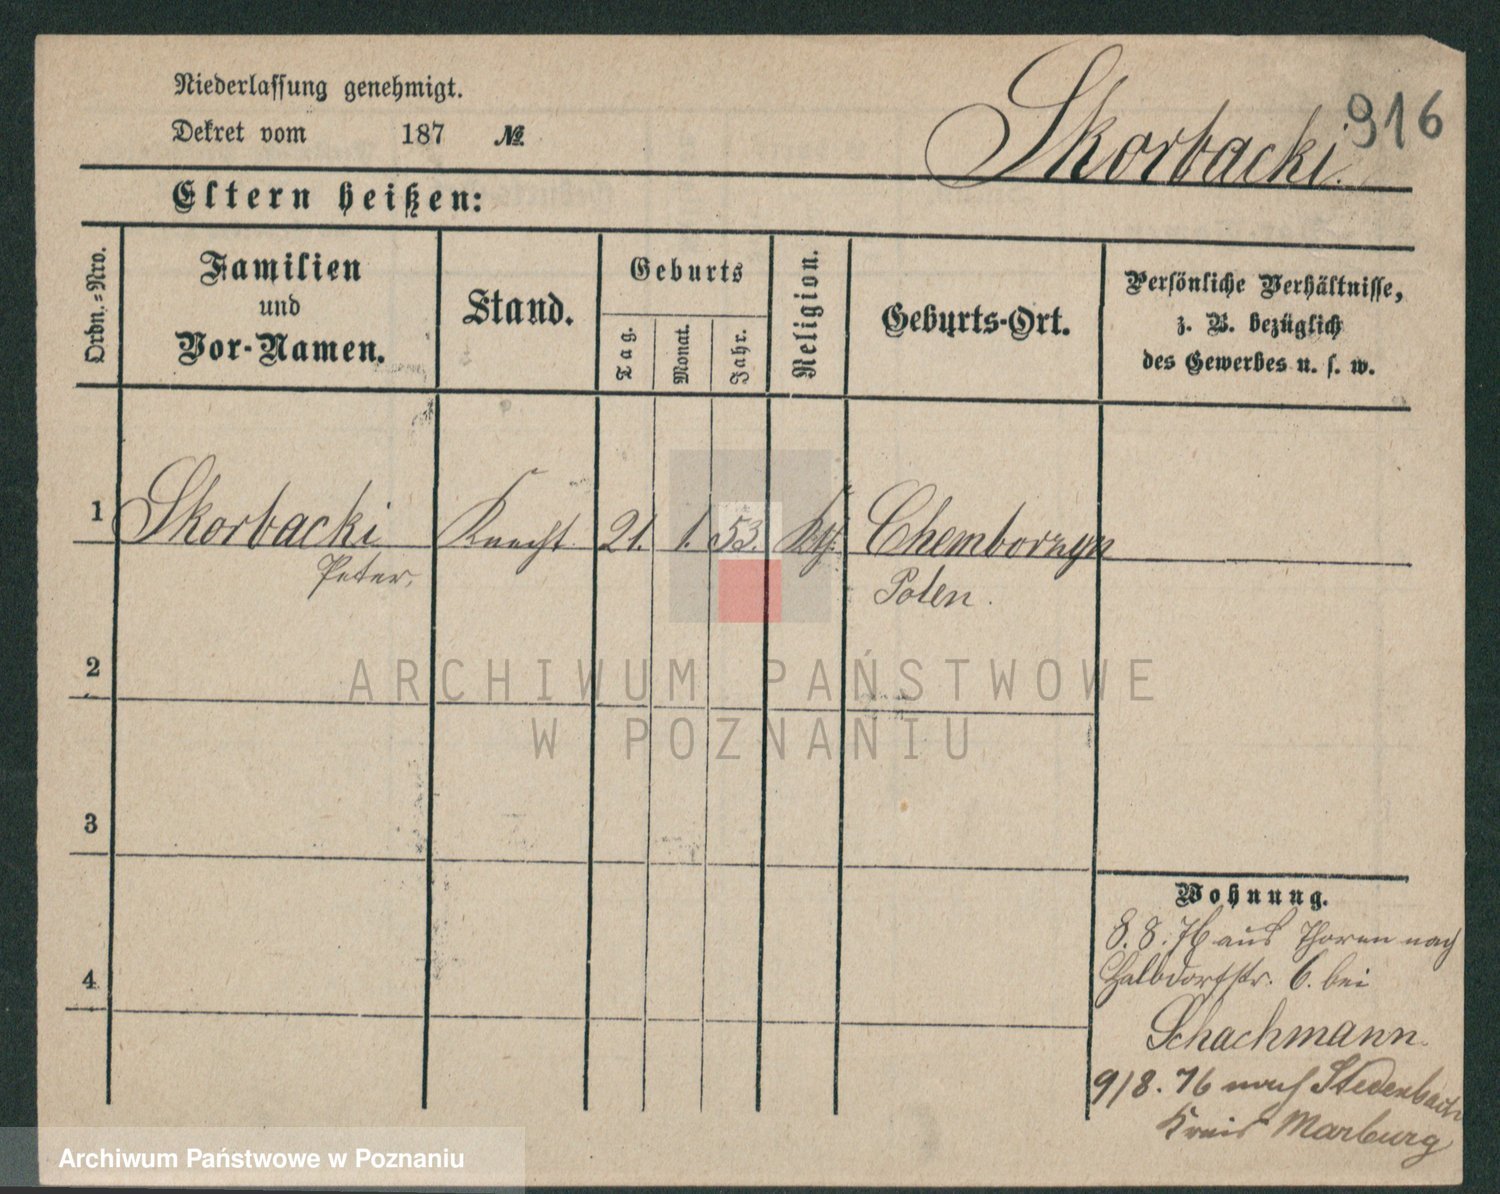 Niederlassung genehmigt.
916
Dekret vom 187 №
Skorbacki.
Eltern heißen:
Ordn.=Nro.
Familien
und
Vor-Namen.
Stand.
Geburts
Tag.
Monat.
Jahr.
Religion.
Geburts-Ort.
Persönliche Verhältnisse,
z. B. bezüglich
des Gewerbes u. s. w.
1 Skorbacki Knecht 21. 1. 53. Kth. Chemborzyn
Peter. Polen.
2
ARCHIWUM PAŃSTWOWE
W POZNANIU
3
Wohnung.
8. 8. 76 aus Thoren nach
4
Halbdorfstr. 6. bei
Schachmann.
9/8. 76 nach Stedenbach
Kreis Marburg
Archiwum Państwowe w Poznaniu